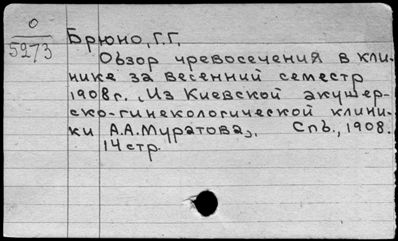 0
5273
Брюно, Г.Г.
Обзор чревосечения в кли-
нике за весенний семестр
1908 г. „Из Киевской акушер-
ско-гинекологической клини-
ки А.А.Муратова„. Спб., 1908.
14 стр.